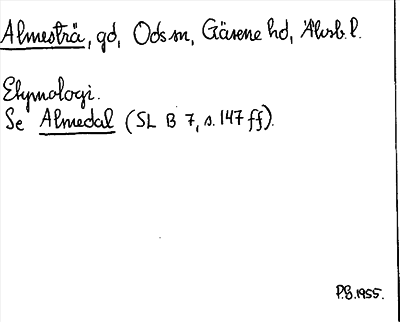 Almesträ, gd, Ods sn, Gäsene hd, Älvsb. l.
Etymologi.
Se Almedal (SL B 7, s. 147 ff).
P.G. 1955.